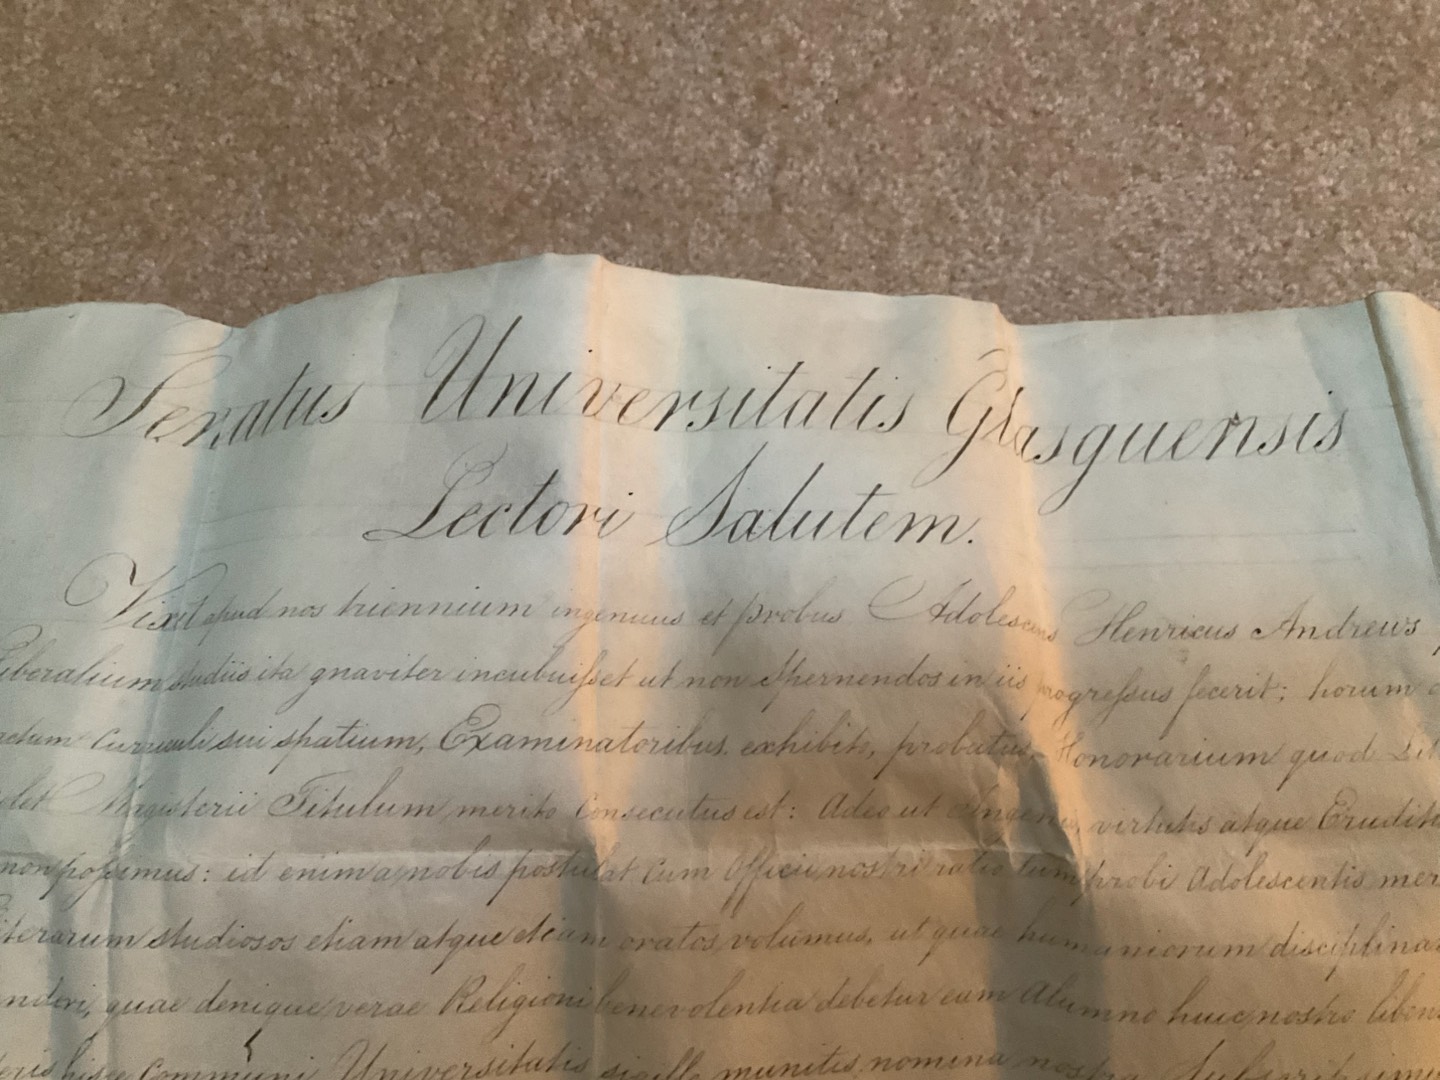 Senatus Universitatis Glasguensis
Lectori Salutem.
Vixit apud nos triennium ingenuus et probus Adolescens Henricus Andrews
Liberalium studiis ita gnaviter incubuisset ut non spernendos in iis progressus fecerit; horum
Curriculi sui spatium, Examinatoribus exhibito, probatus Honorarium quod
Magisterii Titulum, merito Consecutus est: Adeo ut Ingenii, virtutis atque
non possumus: id enim a nobis postulat Cum Officii nostri ratio tum probi Adolescentis
literarum studiosos etiam atque etiam oratos volumus, ut quae humaniorum
quae denique verae Religioni benevolentia debetur eam Alumno huic nostro
hisce Communi Universitatis sigillo munitis nomina nostra